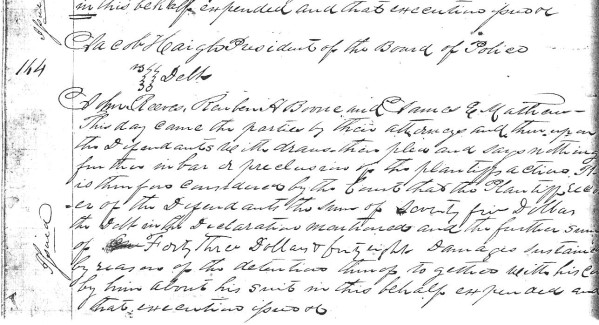 in this behalf expended and that execution issued
Issued
Jacob Haigh President of the Board of Police
144
Debt
John Reeves, Reuben A Boone and James E Mathew
This day came the parties by their attorneys and thereupon
the Defendants withdraws their plea and says nothing
further in bar or preclusion of the plaintiffs action. It
is therefore considered by the Court that the Plaintiff Recov
er of the Defendants the sum of Seventy five Dollars
the Debt in the Declaration mentioned and the further sum
of Forty three Dollars & forty eight Damages sustained
Issued
by reason of the detention thereof to gether with his Co
by him about his suit in this behalf expended and
that execution issued